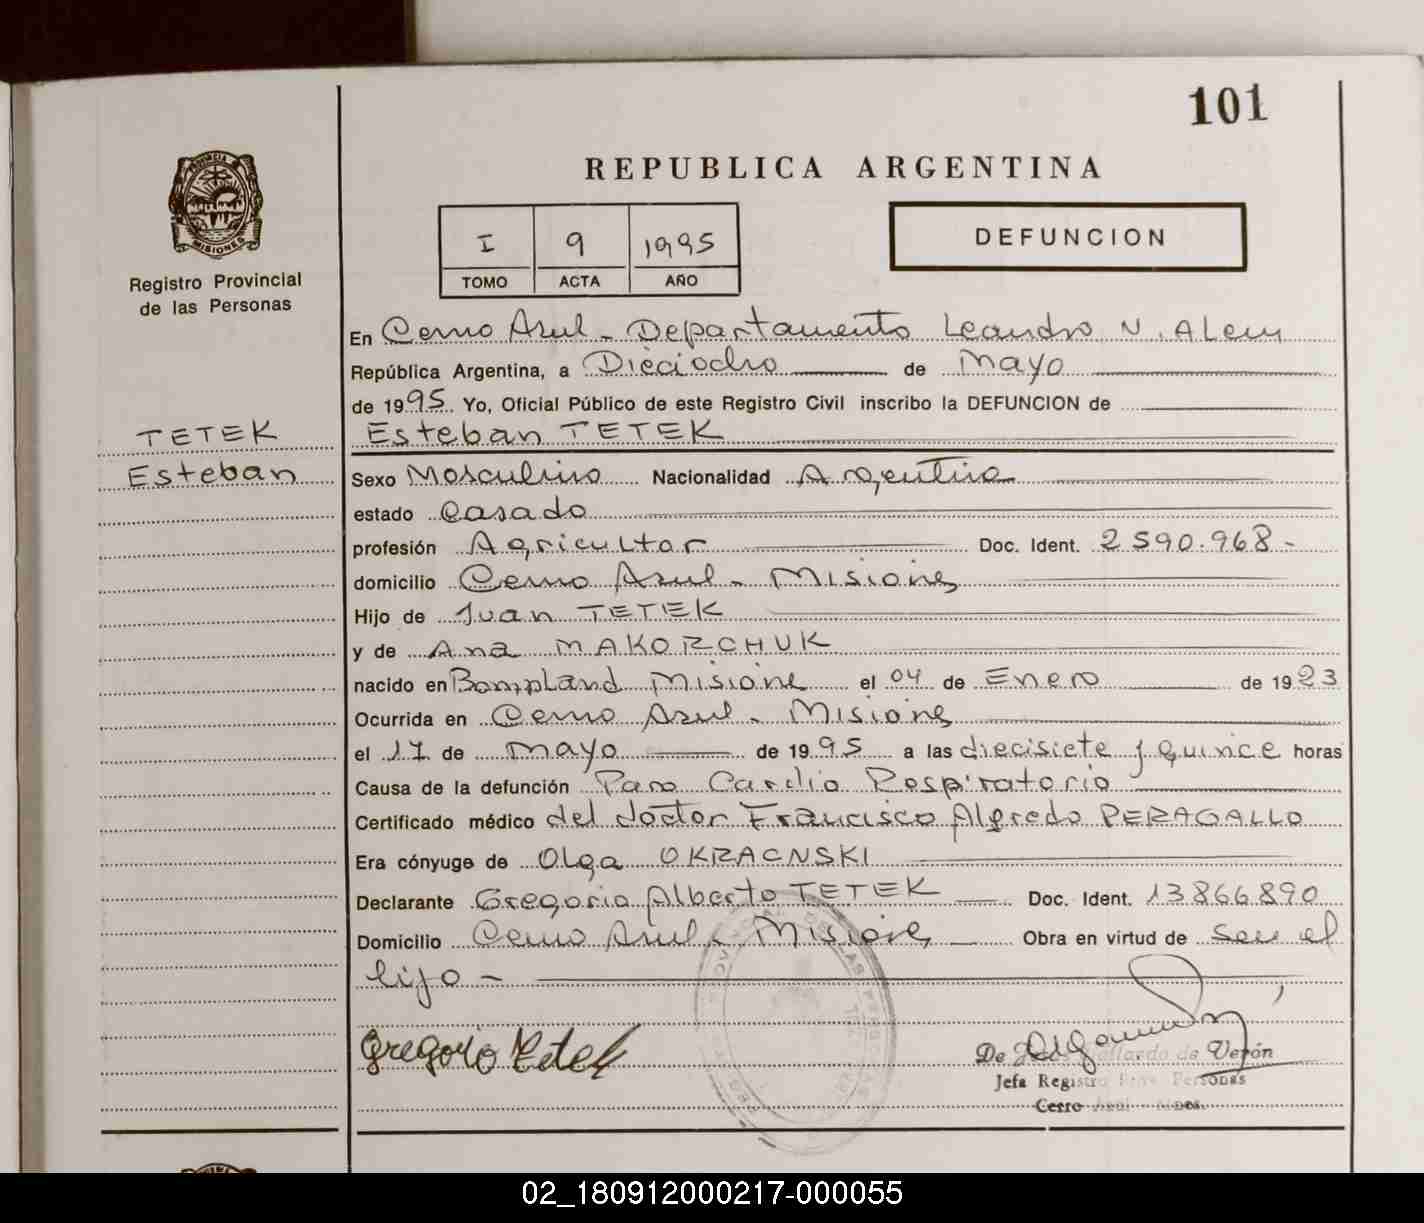 101
REPUBLICA ARGENTINA
PROVINCIA
MISIONES
Registro Provincial
de las Personas
I 9 1995
TOMO ACTA AÑO
DEFUNCION
En Cerro Azul - Departamento Leandro N. Alem
República Argentina, a Dieciocho de Mayo
de 1995 Yo, Oficial Público de este Registro Civil inscribo la DEFUNCION de
TETEK
Esteban
Esteban TETEK
Sexo Masculino Nacionalidad Argentina
estado Casado
profesión Agricultor Doc. Ident. 2590.968-
domicilio Cerro Azul - Misiones
Hijo de Juan TETEK
y de Ana MAKORCHUK
nacido en Bompland Misiones el 04 de Enero de 1923
Ocurrida en Cerro Azul - Misiones
el 17 de Mayo de 1995 a las diecisiete y quince horas
Causa de la defunción Paro Cardio Respiratorio
Certificado médico del doctor Francisco Alfredo PERAGALLO
Era cónyuge de Olga OKRACNSKI
Declarante Gregorio Alberto TETEK Doc. Ident. 13866890
Domicilio Cerro Azul - Misiones Obra en virtud de Ser el
hijo -
Gregorio Tetek
de Verón
Jefa Registro Prov. Personas
Cerro Azul - Mnes.
02_180912000217-000055